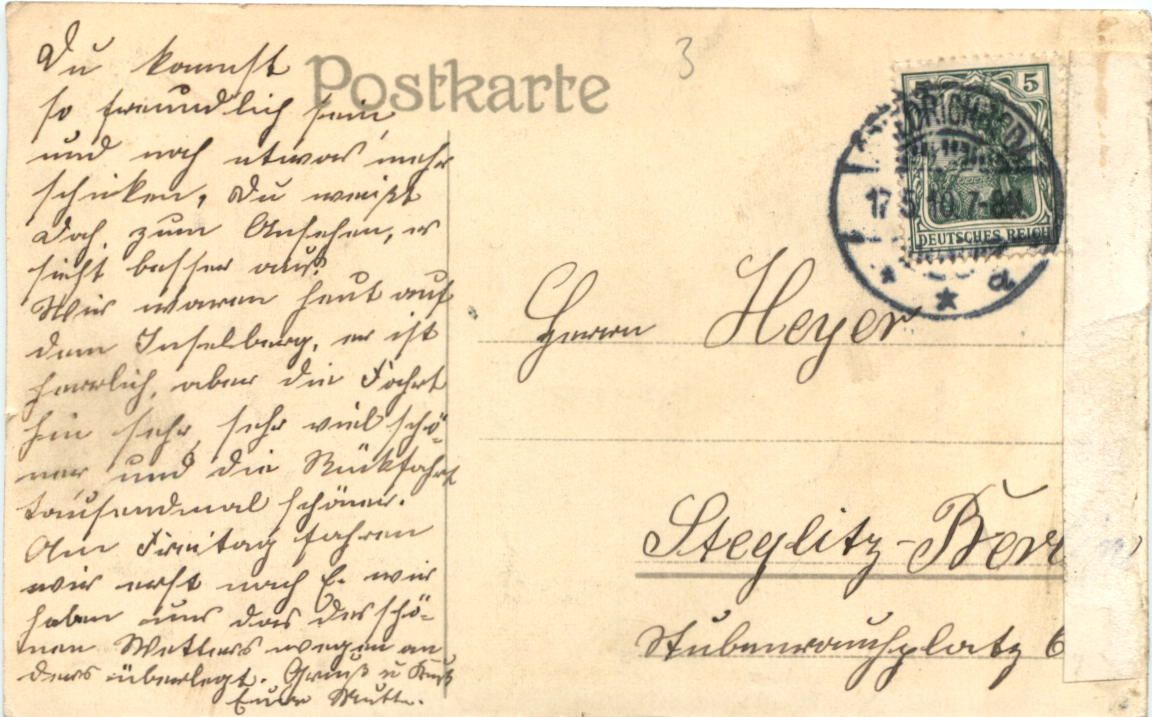 Postkarte
3
Du kannst
so freundlich sein
und noch etwas mehr
schicken, Du weißt
doch, zum Ansehen, es
sieht besser aus.
Wir waren heut auf
dem Inselberg, es ist
herrlich, aber die Fahrt
hin sehr, sehr viel schö-
ner und die Rückfahrt
tausendmal schöner.
Am Freitag fahren
wir erst nach E. wir
haben uns das des schö-
nen Wetters wegen an
ders überlegt. Gruß u Kuß
Eure Mutter.
5
DEUTSCHES REICH
17.5.10. 7-8N.
d
Herrn Heyer
Steglitz-Ber
Stubenrauchplatz 6